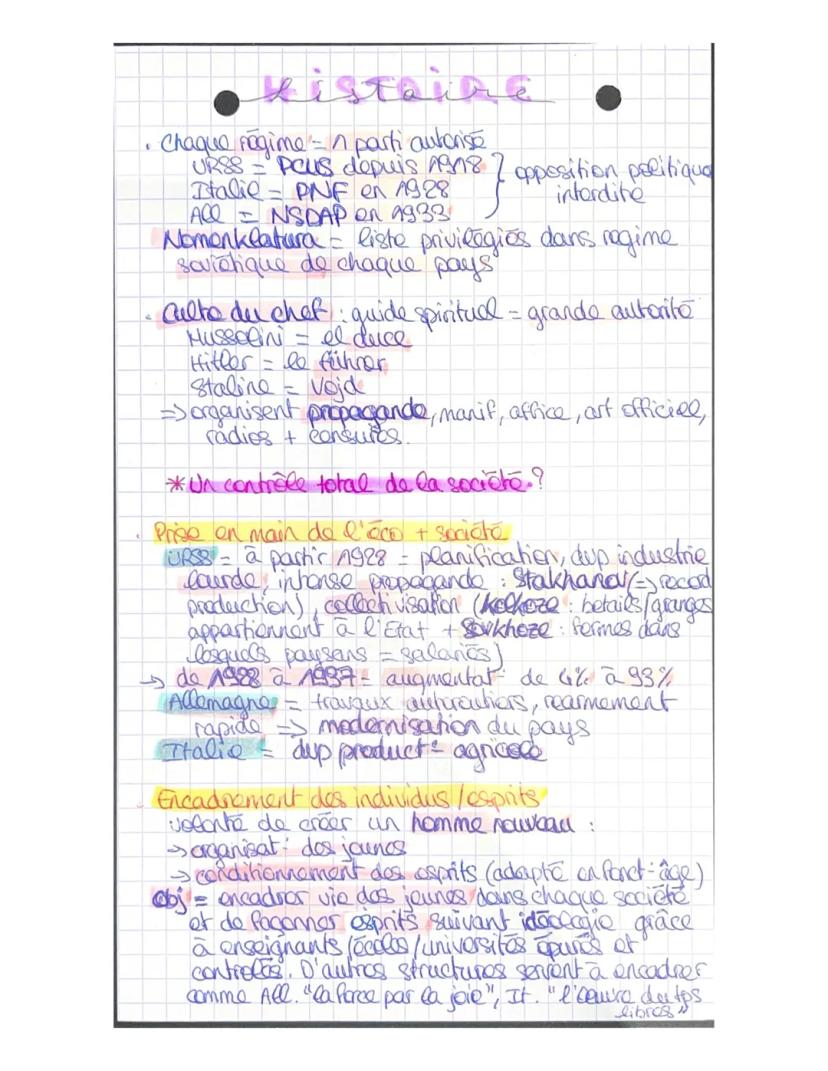 Histoire
. Chaque régime = 1 parti autorisé
URSS = PCUS depuis 1918
Italie = PNF en 1928
All = NSDAP en 1933
} opposition politique
interdite
Nomenklatura = liste privilégiés dans régime
soviétique de chaque pays
. Culte du chef : guide spirituel = grande autorité
Mussolini = el duce
Hitler = le führer
Staline = Vojd
=> organisent propagande, manif, affice, art officiel,
radios + censures.
* Un contrôle total de la société ?
. Prise en main de l'éco + société
URSS = à partir 1928 = planification, dvp industrie
lourde, intense propagande : Stakhanov (-> record
production), collectivisation (kolkoze : betails/granges
appartiennent à l'Etat + Sovkhoze : fermes dans
lesquels paysans = salariés)
-> de 1928 à 1937 = augmentat° de 4% à 93%
Allemagne = travaux autoroutiers, rearmement
rapide => modernisation du pays
Italie = dvp product° agricole
. Encadrement des individus / esprits
volonté de créer un homme nouveau :
-> organisat° des jeunes
-> conditionnement des esprits (adapté en fonct° âge)
Obj = encadrer vie des jeunes dans chaque société
et de façonner esprits suivant idéologie grâce
à enseignants/écoles/universités épurés et
controlés. D'autres structures servent à encadrer
comme All. "la force par la joie", It. "l'œuvre du tps
libres"